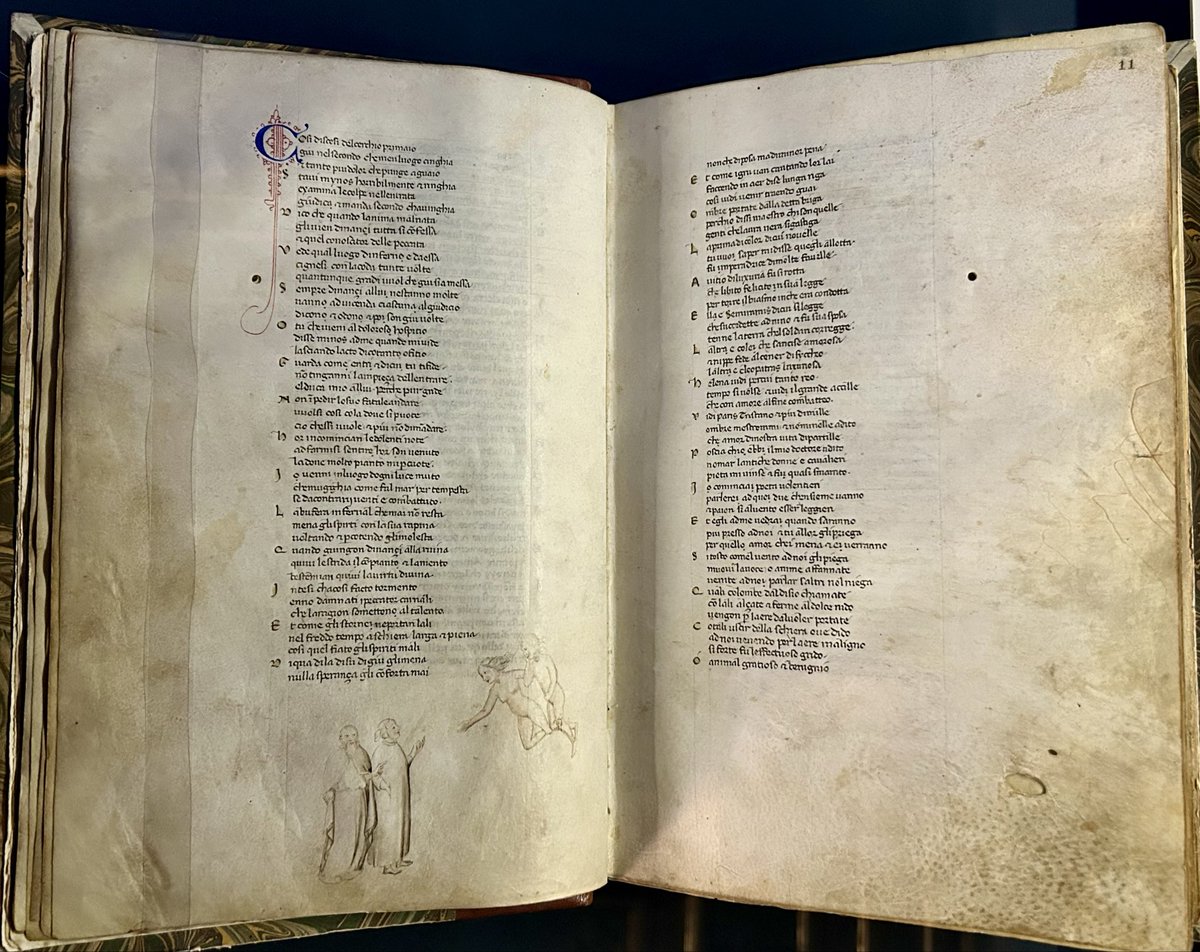 Cosi discesi del cerchio primaio
giu nel secondo che men luogo cinghia
& tanto piu dolor che punge a guaio
Stavi mynos horribilmente & ringhia
examina le colpe nellentrata
giudica & manda secondo chavinghia
Dico che quando lanima malnata
gli vien dinançi tutta si cõfessa
& quel conoscitor delle peccata
Vede qual luogo dinferno e daessa
cignesi con la coda tante volte
quantunque gradi vuol che giu sia messa
Sempre dinançi allui ne stanno molte
vanno a vicenda ciascuna al giudicio
dicono & odono & poi son giu volte
O tu che vieni al doloroso hospitio
disse minos adme quando mi vide
lasciando lacto di cotanto ofitio
Guarda come entri & di cui tu ti fide
nõ tinganni lampieça dellentrare
elduca mio allui perche pur gride
Non ĩpedir lo suo fatale andare
vuolsi cosi cola dove si puote
cio che si vuole & piu nõ dimãdare
Hor incomincian le dolenti note
ad farmisi sentire hor son venuto
la dove molto pianto mi percuote
Io venni in luogo dogni luce muto
che mugghia come fa l mar per tempesta
se da contrari venti e combattuto
La bufera infernal che mai nõ resta
mena gli spirti con la sua rapina
voltando & percotendo gli molesta
Quando giungon dinançi alla ruina
quivi le strida il cõpianto & lamento
bestemian quivi la virtu divina
Intesi cha cosi facto tormento
enno dannati i peccator carnali
che la ragion somettono al talento
Et come gli stornei ne portan lali
nel freddo tempo a schiera larga & piena
cosi quel fiato gli spiriti mali
Di qua di la di su di giu gli mena
nulla sperança gli cõforta mai
11
non che di posa ma di minor pena
Et come i gru van cantando lor lai
faccendo in aer di se lunga riga
cosi vidi venir traendo guai
Ombre portate dalla detta briga
perchio dissi maestro chi son quelle
genti che laura nera si gastiga
La prima di color di cui novelle
tu vuoi saper mi disse quegli allotta
fu imperadrice di molte favelle
A vitio di luxuria fu si rotta
che libito fe licito in sua legge
per torre il biasmo in che era condotta
Ella e Semiramis di cui si legge
che succedette ad nino & fu sua sposa
tenne la terra chel soldan corregge
Laltra e colei che sancise amorosa
& ruppe fede al cener di sycheo
laltra e cleopatras luxuriosa
Helena vidi per cui tanto reo
tempo si volse & vidi il grande acille
che con amore alfine combatteo
Vidi paris tristano & piu di mille
ombre mostrommi & nominolle a dito
che amor di nostra vita dipartille
Poscia chio ebbi il mio doctore udito
nomar lantiche donne e cavalieri
pieta mi vinse & fui quasi smarrito
Io cominciai poeta volentieri
parlerei ad quei due chensieme vanno
& paion si al vento esser leggieri
Et egli adme vedrai quando saranno
piu presso ad noi & tu allor gli priega
per quello amor chei mena & ei verranno
Si tosto come l vento ad noi gli piega
muovi la voce o anime affannate
venite ad noi parlar saltri nol niega
Quali colombe dal disio chiamate
cõ lali alçate & ferme al dolce nido
vengon p laere dal voler portate
Cotali uscir della schiera ove dido
ad noi venendo per laere maligno
si forte fu l affectuoso grido
O animal gratioso & benignio